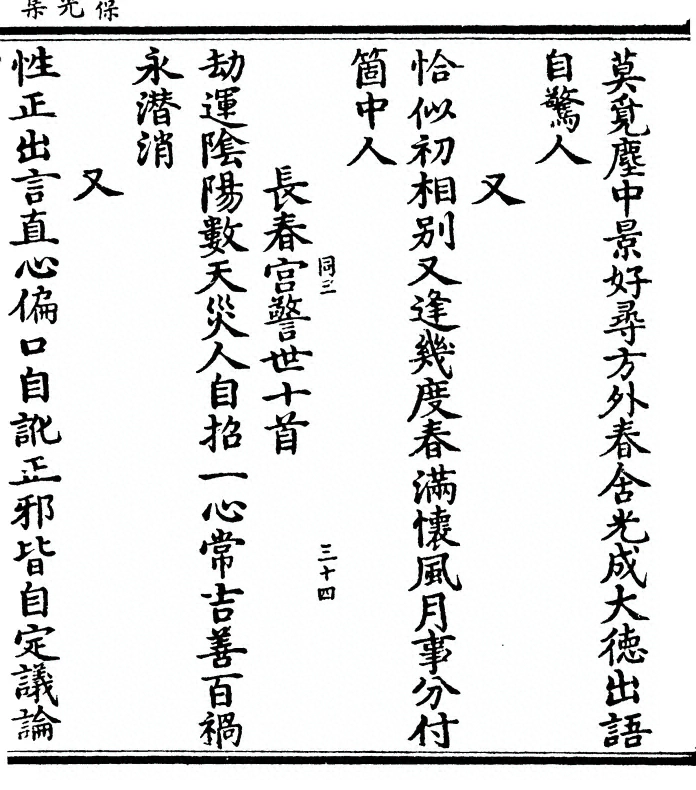 保光集
莫覓塵中景好尋方外春含光成大德出語
自驚人
又
恰似初相別又逢幾度春滿懷風月事分付
箇中人
同三　三十四
長春宮警世十首
劫運陰陽數天災人自招一心常吉善百禍
永潛消
又
性正出言直心偏口自訛正邪皆自定議論